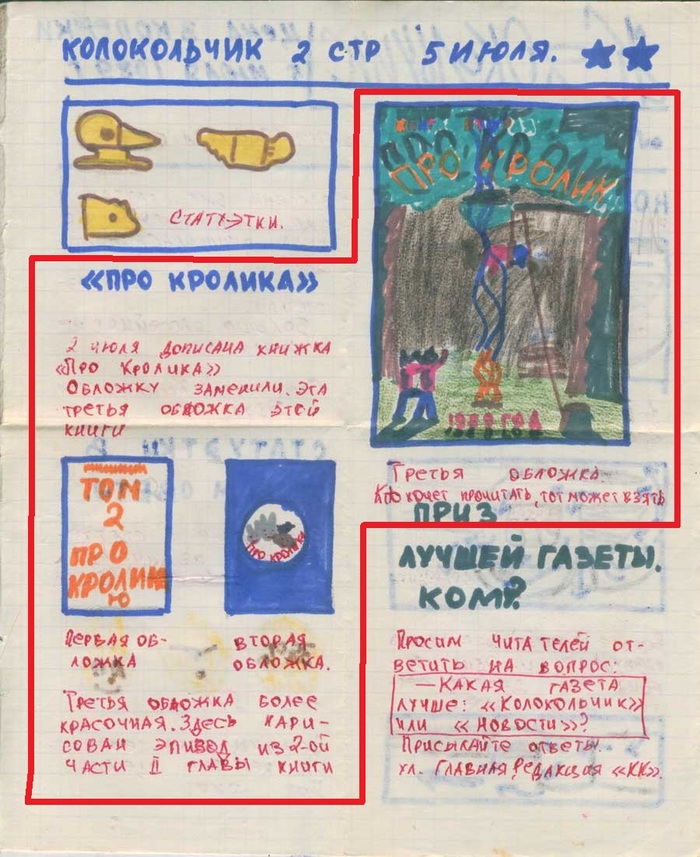 КОЛОКОЛЬЧИК 2 СТР 5 ИЮЛЯ.
СТАТУЭТКИ.
«ПРО КРОЛИКА»
2 ИЮЛЯ ДОПИСАНА КНИЖКА
«ПРО КРОЛИКА»
ОБЛОЖКУ ЗАМЕНИЛИ. ЭТА
ТРЕТЬЯ ОБЛОЖКА ЭТОЙ
КНИГИ
ТОМ
2
ПРО
КРОЛИК
Ю
ПРО КРОЛИКА
ПЕРВАЯ ОБ-
ЛОЖКА
ВТОРАЯ
ОБЛОЖКА.
ТРЕТЬЯ ОБЛОЖКА БОЛЕЕ
КРАСОЧНАЯ. ЗДЕСЬ НАРИ-
СОВАН ЭПИЗОД ИЗ 2-ОЙ
ЧАСТИ II ГЛАВЫ КНИГИ
ПРО КРОЛИК
ТРЕТЬЯ ОБЛОЖКА
КТО ХОЧЕТ ПРОЧИТАТЬ, ТОТ МОЖЕТ ВЗЯТЬ
ПРИЗ
ЛУЧШЕЙ ГАЗЕТЫ.
КОМУ?
ПРОСИМ ЧИТАТЕЛЕЙ ОТ-
ВЕТИТЬ НА ВОПРОС:
— КАКАЯ ГАЗЕТА
ЛУЧШЕ: «КОЛОКОЛЬЧИК»
ИЛИ «НОВОСТИ»?
ПРИСЫЛАЙТЕ ОТВЕТЫ
УЛ. ГЛАВНАЯ, РЕДАКЦИЯ «КК».